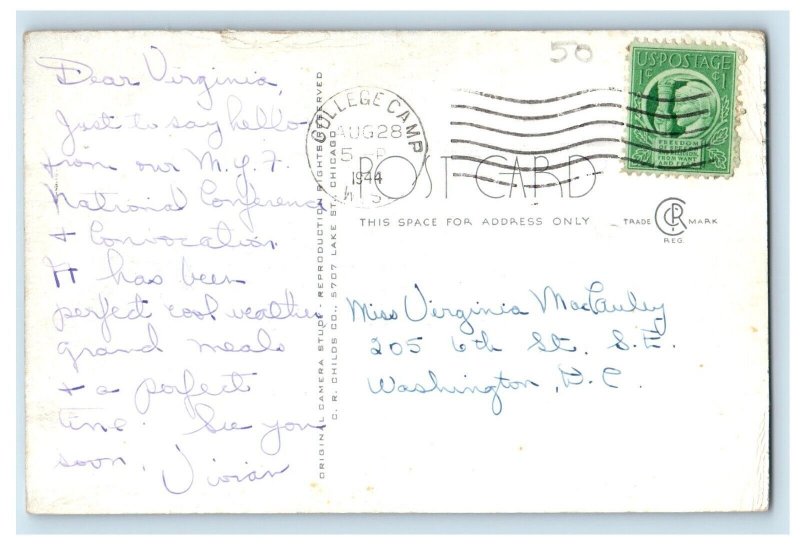 Dear Virginia,
Just to say hello
from our M.Y.F.
National Conference
+ Convocation
It has been
perfect cool weather
grand meals
+ a perfect
time. See you
soon,
Vivian
ORIGINAL CAMERA STUDY. REPRODUCTION RIGHTS RESERVED
C. R. CHILDS CO., 5707 LAKE ST., CHICAGO
50
COLLEGE CAMP
AUG 28
5
1944
U.S. POSTAGE
1¢ ¢1
FREEDOM
OF SPEECH
AND RELIGION,
FROM WANT
AND FEAR
POST CARD
THIS SPACE FOR ADDRESS ONLY
TRADE MARK
REG.
Miss Virginia MacCauley
205 6th St. S.E.
Washington, D.C.